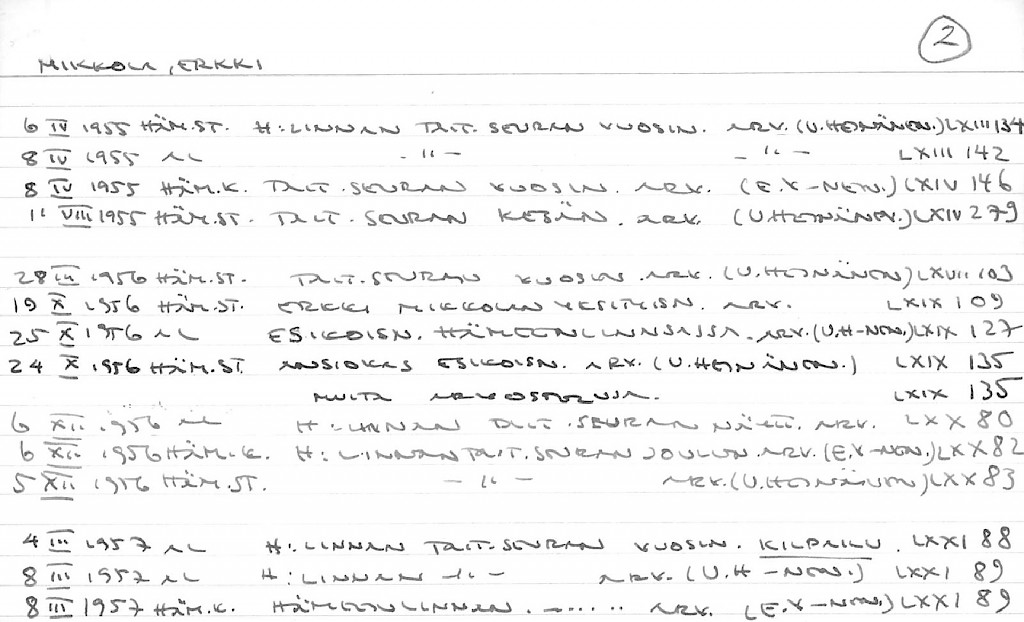 2
MIKKOLA, ERKKI
6 IV 1955 HÄM.ST. H:LINNAN TAIT.SEURAN VUOSIN. ARV. (U.HEINÄNEN.) LXIII 134
8 IV 1955 AL -"- -"- LXIII 142
8 IV 1955 HÄM.K. TAIT.SEURAN VUOSIN. ARV. (E.V-NEN.) LXIV 146
11 VIII 1955 HÄM.ST. TAIT.SEURAN KESÄN. ARV. (U.HEINÄNEN.) LXIV 279
28 III 1956 HÄM.ST. TAIT.SEURAN VUOSIN. ARV. (U.HEINÄNEN) LXVII 103
19 X 1956 HÄM.ST. ERKKI MIKKOLAN YKSITYISN. ARV. LXIX 109
25 X 1956 AL ESIKOISN. HÄMEENLINNSASSA. ARV. (U.H-NEN.) LXIX 127
24 X 1956 HÄM.ST. ANSIOKAS ESIKOISN. ARV. (U.HEINÄNEN.) LXIX 135
MUITA ARVOSTELUJA. LXIX 135
6 XII 1956 AL H:LINNAN TAIT.SEURAN NÄYTT. ARV. LXX 80
6 XII 1956 HÄM.K. H:LINNAN TAIT.SEURAN JOULUN. ARV. (E.V-NEN.) LXX 82
5 XII 1956 HÄM.ST. -"- ARV. (U.HEINÄNEN) LXX 83
4 III 1957 AL H:LINNAN TAIT.SEURAN VUOSIN. KILPAILU. LXXI 88
8 III 1957 AL H:LINNAN -"- ARV. (U.H-NEN.) LXXI 89
8 III 1957 HÄM.K. HÄMEENLINNAN. -..... ARV. (E.V-NEN.) LXXI 89